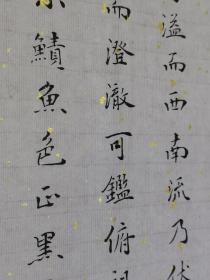 溢而西南流乃伏
而澄澈可鑑俯
鱝魚色正黑